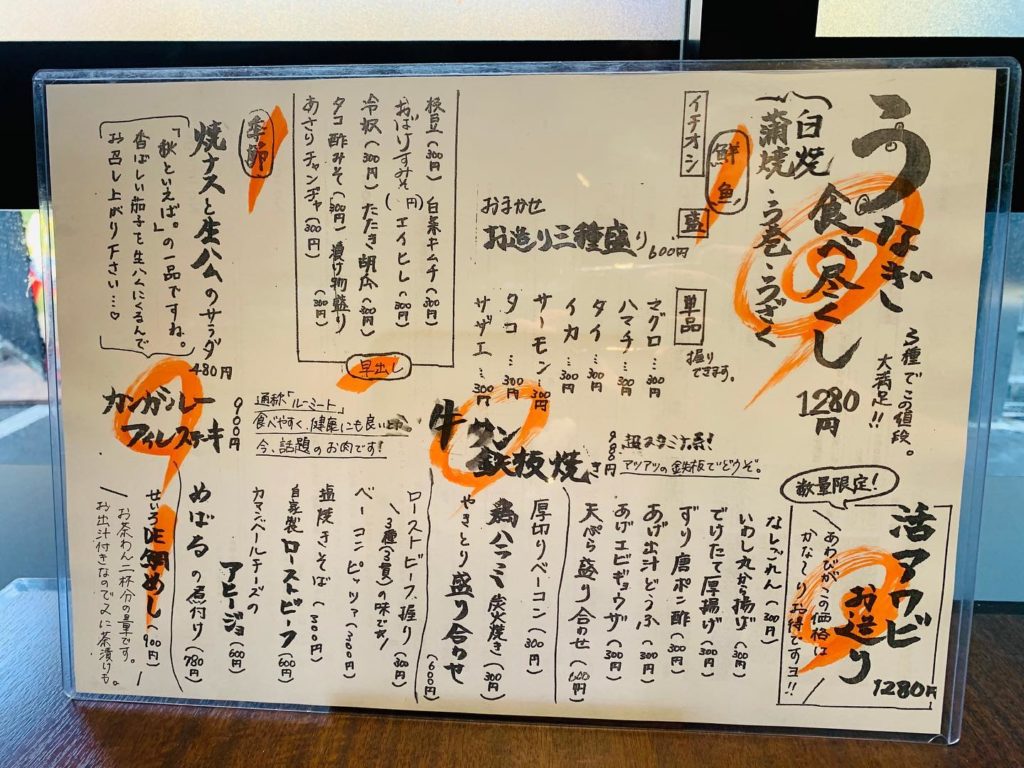 うなぎ
食べ尽くし
白焼
蒲焼・う巻・うざく
3種でこの値段。
大満足!!
1280円
イチオシ
鮮魚
盛
おまかせ
お造り三種盛り
600円
単品
握りできます。
マグロ…300
ハマチ…300
タイ…300
イカ…300
サーモン…300
タコ…300
サザエ…300
枝豆(300円) 白菜キムチ(300円)
おばけすみそ( 円) エイヒレ(300円)
冷奴(300円) たたき胡瓜(300円)
タコ酢みそ(300円) 漬け物盛り(300円)
あさりチャンヂャ(300円)
早出し
季節
焼ナスと生ハムのサラダ
480円
「秋といえば。」の一品ですね。
香ばしい茄子を生ハムにくるんで
お召し上がり下さい…♡
数量限定!
活アワビ
お造り
1280円
あわびがこの価格は
かな〜りお得ですヨ!!
牛タン
鉄板焼き
980円
超スタミナ系!
アツアツの鉄板でどうぞ。
なしごれん(300円)
いわし丸から揚げ(300円)
でけたて厚揚げ(300円)
ずり唐ポン酢(300円)
あげ出汁どうふ(300円)
あげエビギョウザ(300円)
天ぷら盛り合わせ(600円)
厚切りベーコン(300円)
鶏ハラミ炭火焼き(300円)
やきとり盛り合わせ(600円)
ローストビーフ握り(300円)
3種(3貫)の味です
ベーコンピッツァ(300円)
塩焼きそば(300円)
自家製ローストビーフ(600円)
カマンベールチーズの
アヒージョ(600円)
めばるの煮付け(780円)
せいろDE鯛めし(900円)
お茶わん二杯分の量です。
お出汁付きなので〆に茶漬けも。
カンガルー
フィレステーキ
900円
通称「ルーミート」
食べやすく、健康にも良いとか
今、話題のお肉です!